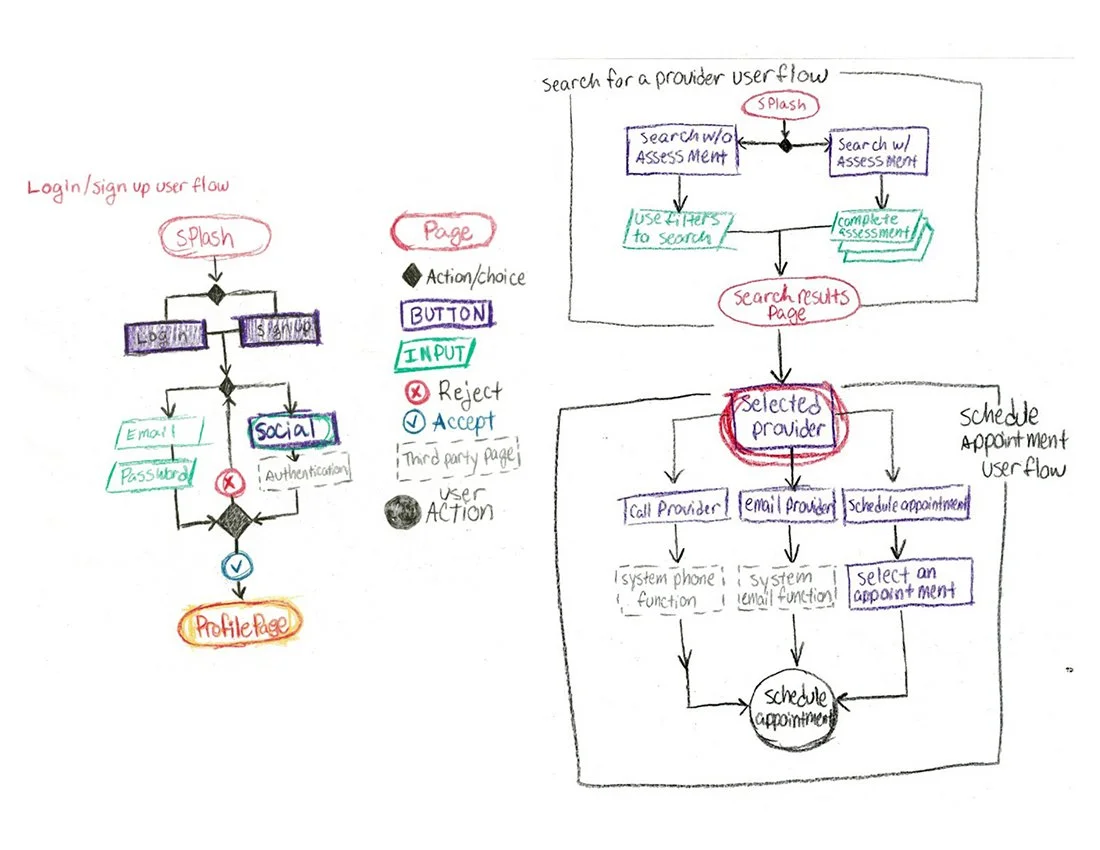 Login/sign up user flow
Splash
Log in
Sign up
Email
Password
Social
Authentication
Profile Page
Page
Action/choice
BUTTON
INPUT
Reject
Accept
Third party page
user
ACTION
search for a provider user flow
Splash
Search w/o
ASSESSMENT
Search w/
ASSESSMENT
use filters
to search
complete
assessment
Search results
Page
Selected
provider
schedule
Appointment
user flow
Call Provider
email provider
schedule appointment
system phone
function
system
email function
select an
appointment
schedule
appointment